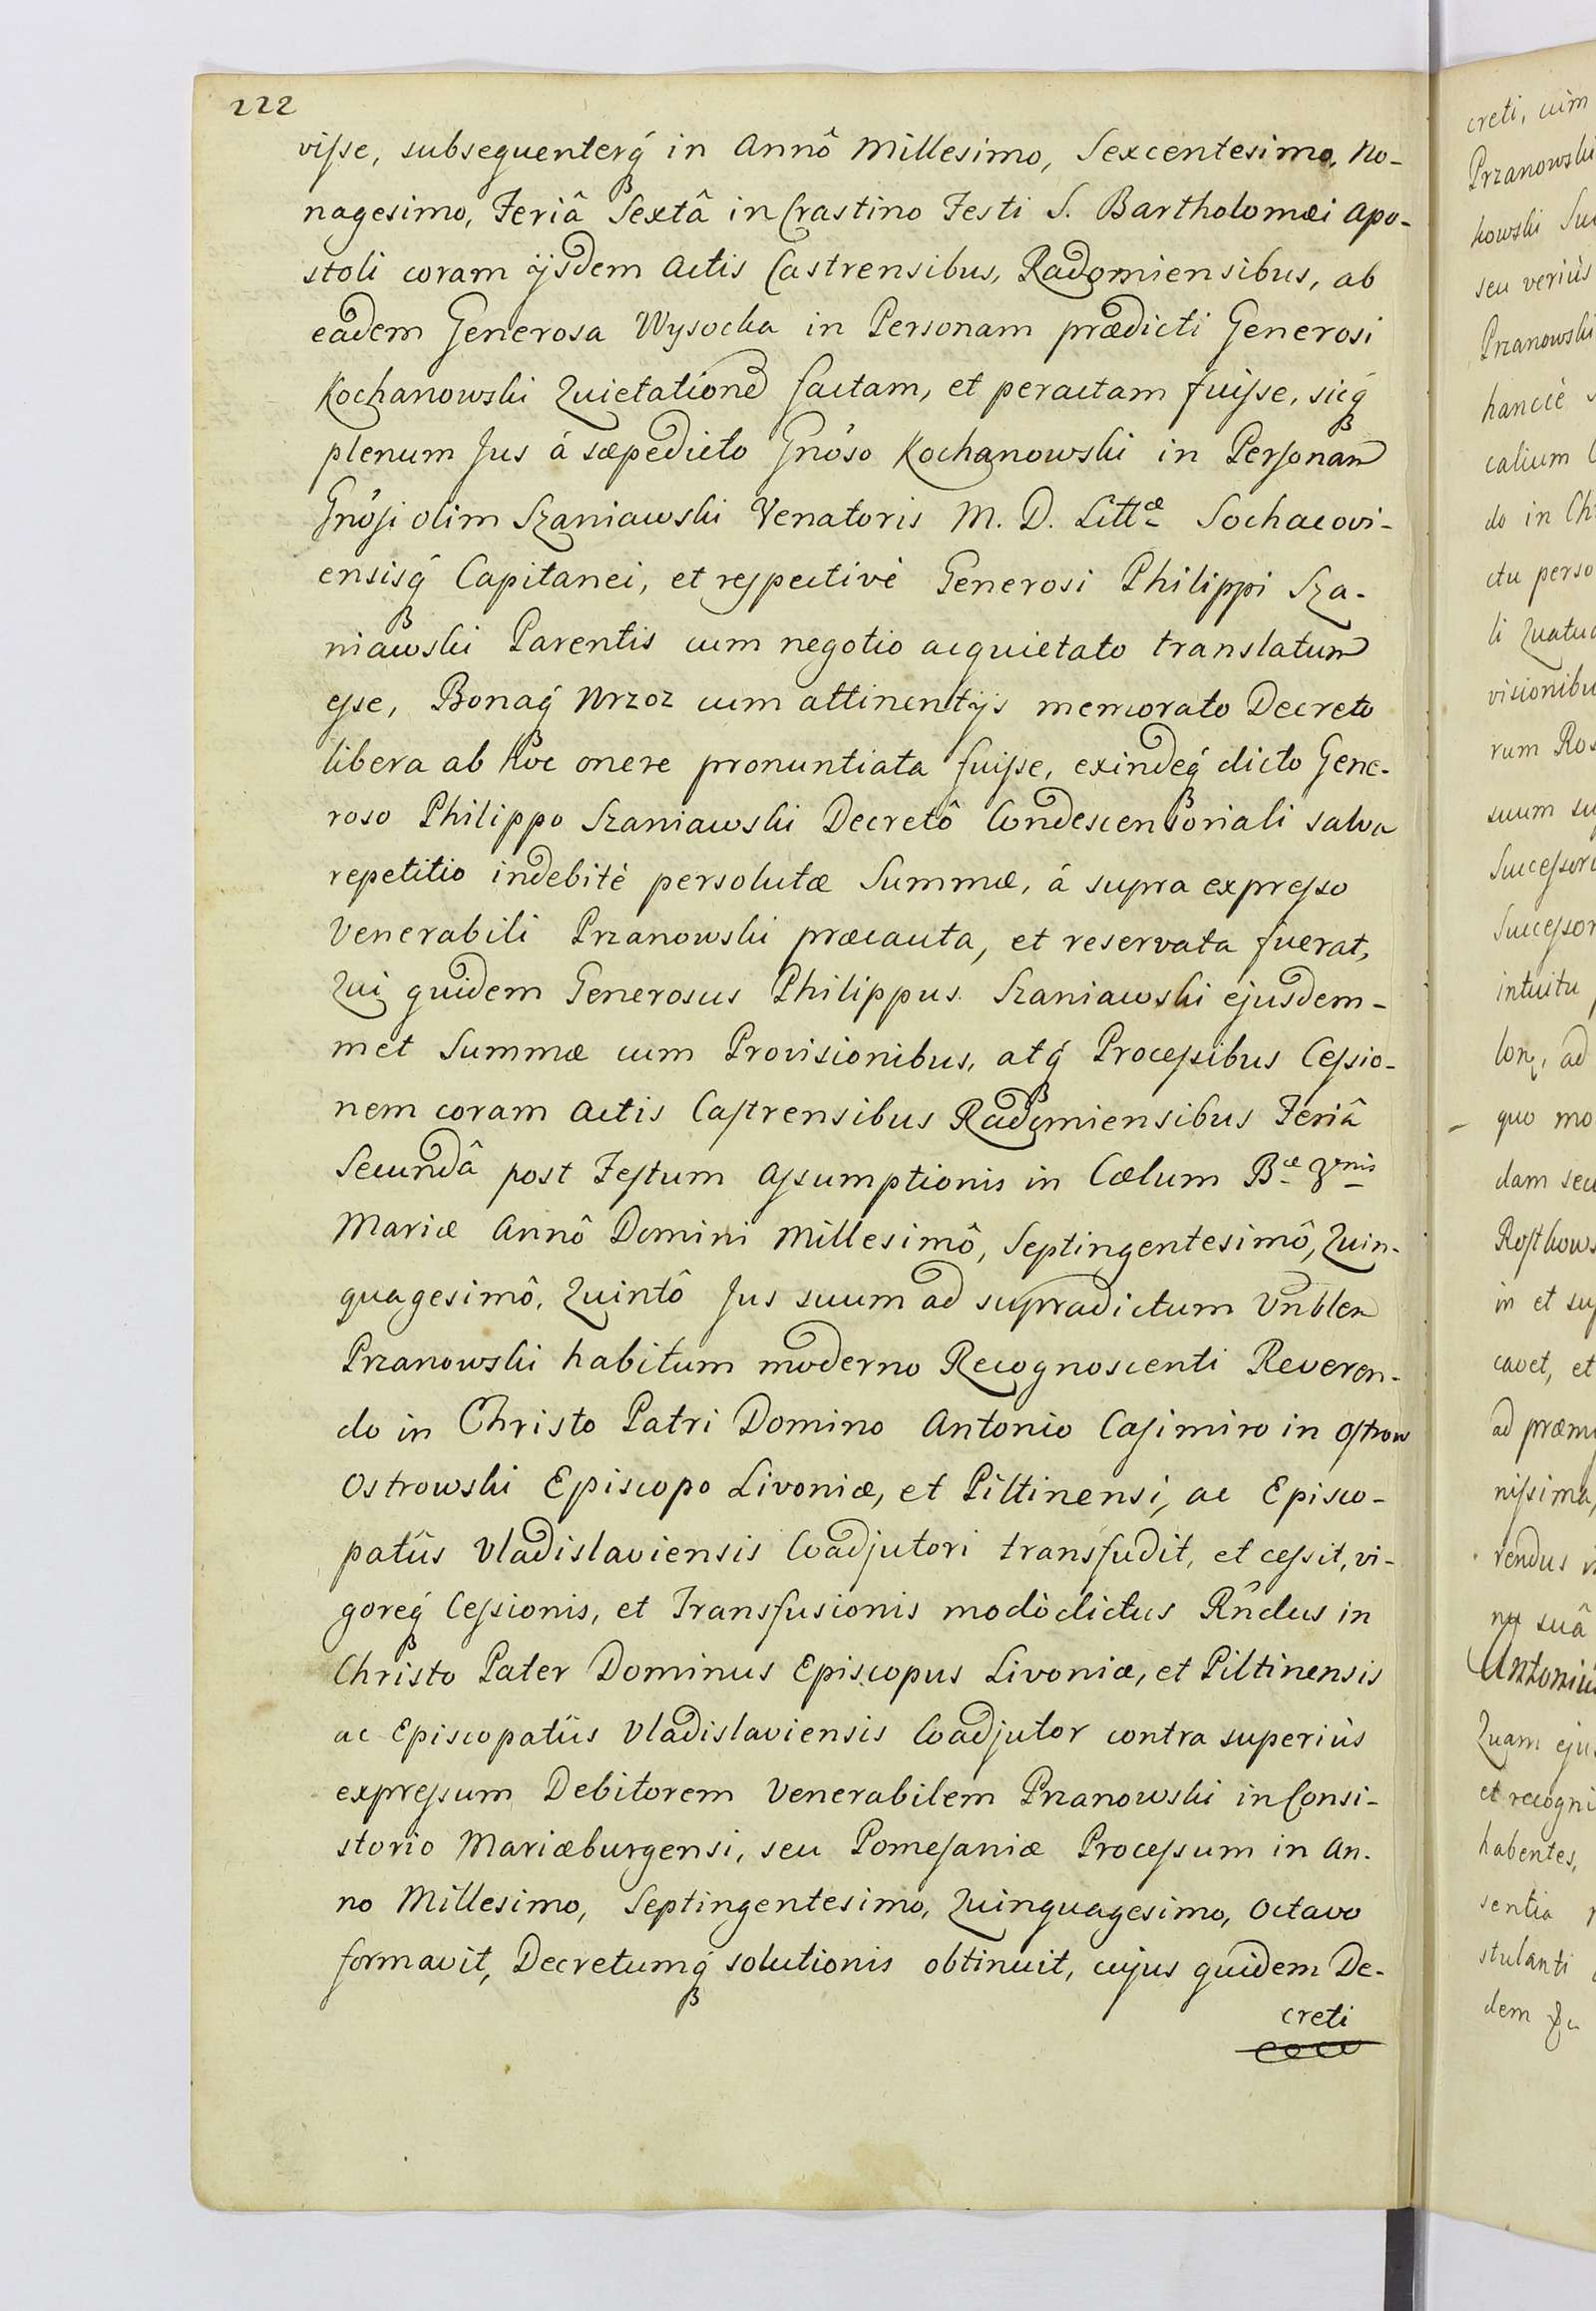 222
visse, subsequenterq́ in Annô Millesimo, Sexcentesimo, No-
nagesimo, Feriâ Sextâ in Crastino Festi S. Bartholomæi Apo-
stoli coram ijsdem Actis Castrensibus, Radomiensibus, ab
eadem Generosa Wysocka in Personam prædicti Generosi
Kochanowski Quietatione factam, et peractam fuisse, sicq́
plenum Jus á sæpedicto Gnôso Kochanowski in Personam
Gnôsi olim Szaniawski Venatoris M. D. Littæ Sochacovi-
ensisq́ Capitanei, et respectivè Generosi Philippi Sza-
niawski Parentis cum negotio acquietato translatum
esse, Bonaq́ Wrzoz cum attinentijs memorato Decreto
libera ab hoc onere pronuntiata fuisse, exindeq́ dicto Gene-
roso Philippo Szaniawski Decretô Condescensoriali salva
repetitio indebitè persolutæ Summæ, á supra expresso
Venerabili Przanowski præcauta, et reservata fuerat,
Qui quidem Generosus Philippus Szaniawski ejusdem-
met Summæ cum Provisionibus, atq́ Processibus Cessio-
nem coram Actis Castrensibus Radomiensibus Feriâ
Secundâ post Festum Assumptionis in Cælum Bæ Vnis
Mariæ Annô Domini Millesimô, Septingentesimô, Quin-
quagesimô, Quintô Jus suum ad supradictum Vnblem
Przanowski habitum moderno Recognoscenti Reveren-
do in Christo Patri Domino Antonio Casimiro in Ostrow
Ostrowski Episcopo Livoniæ, et Piltinensi, ac Episco-
patûs Vladislaviensis Coadjutori transfudit, et cessit, vi-
goreq́ Cessionis, et Transfusionis modò dictus Rñdus in
Christo Pater Dominus Episcopus Livoniæ, et Piltinensis
ac Episcopatûs Vladislaviensis Coadjutor contra superiùs
expressum Debitorem Venerabilem Przanowski in Consi-
storio Mariæburgensi, seu Pomesaniæ Processum in An-
no Millesimo, Septingentesimo, Quinquagesimo, Octavo
formavit, Decretumq́ solutionis obtinuit, cujus quidem De-
creti
creti, cùm
Przanowski
kowski Su
seu veriùs
Przanowski
hancce
calium
do in Ch
ctu perso
li Quatu
visionibu
rum Ros
suum su
Successor
Successor
intuitu
lon, ad
quo mo
dam seu
Rostkows
in et sup
cavet, et
ad præm
nissima,
rendus
suâ
Antoniu
Quam ejus
et recogni
habentes,
sentia
stulanti
dem &c